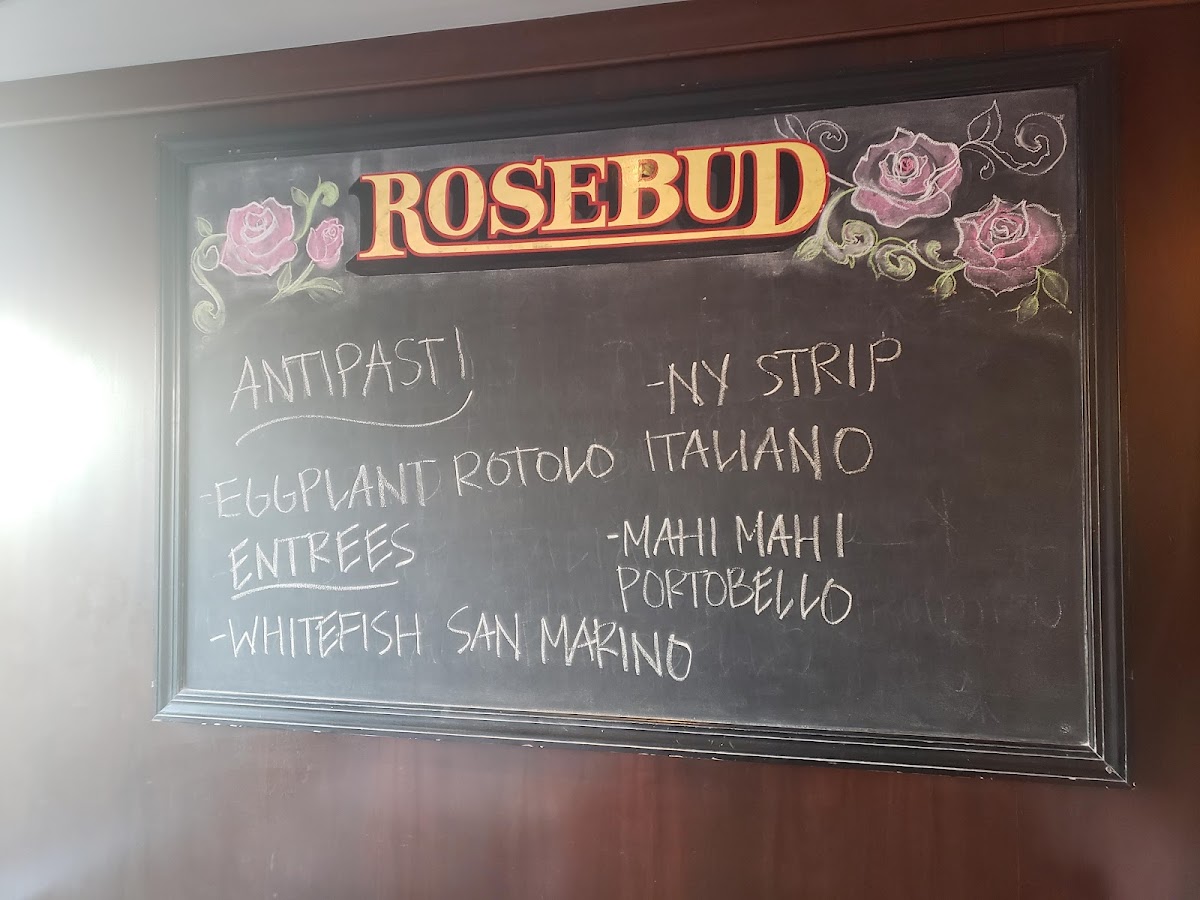 ROSEBUD
ANTIPASTI
-EGGPLANT ROTOLO
ENTREES
-WHITEFISH SAN MARINO
-NY STRIP
ITALIANO
-MAHI MAHI
PORTOBELLO